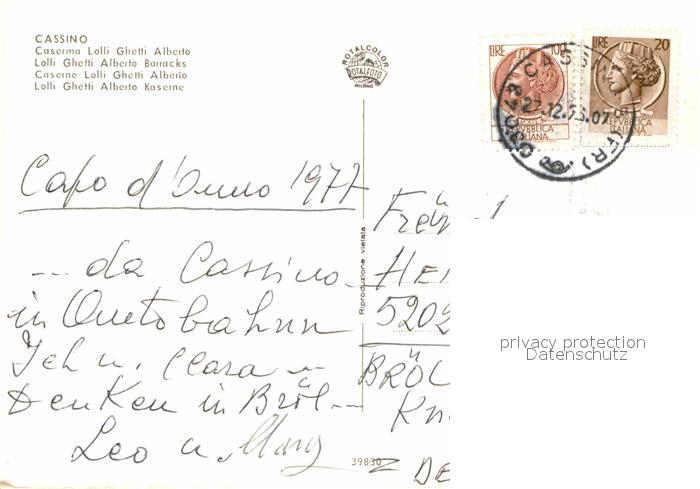 CASSINO
Caserma Lolli Ghetti Alberto
Lolli Ghetti Alberto Barracks
Caserne Lolli Ghetti Alberto
Lolli Ghetti Alberto Kaserne
ROTALCOLOR
ROTALFOTO
MILANO
LIRE 100
REPVBBLICA
ITALIANA
LIRE 20
REPVBBLICA
ITALIANA
Capo d'Anno 1977
... da Cassino
in Autobahnn
Ich u. Clara
Denken in Bröl
Leo u
Riproduzione vietata
39830
HE
5202
BRÖL
DE
privacy protection
Datenschutz